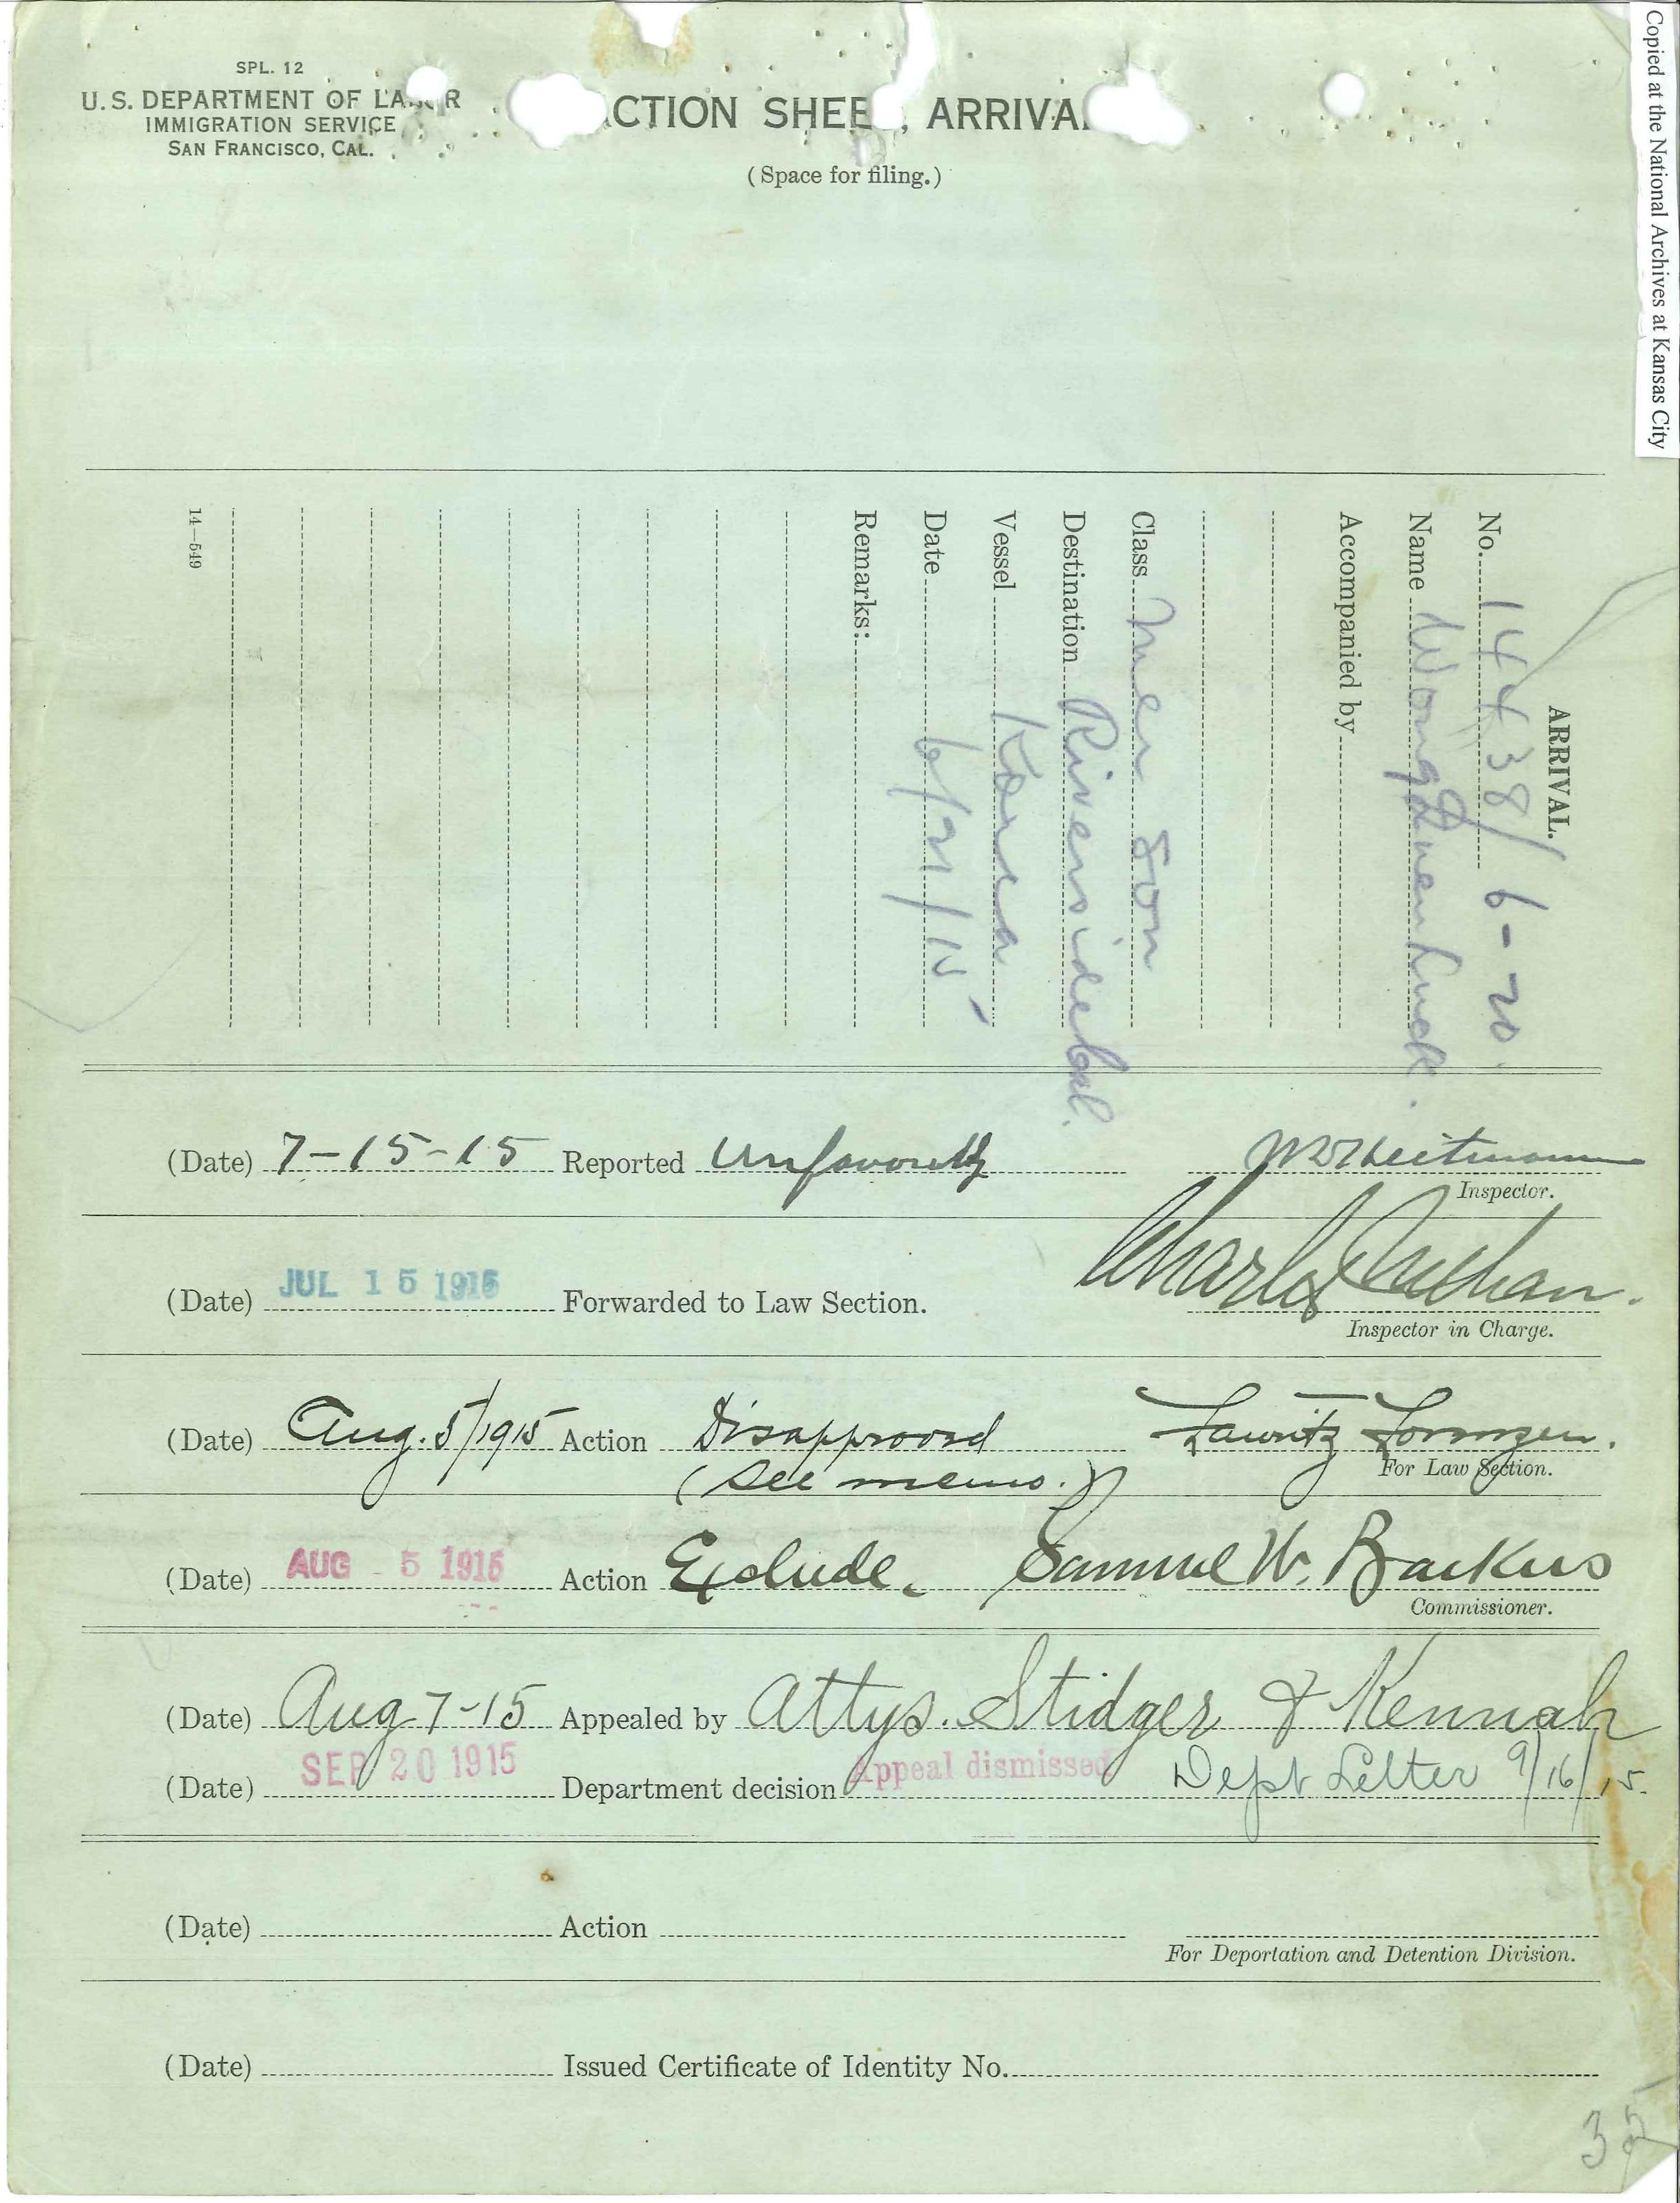 Copied at the National Archives at Kansas City
SPL. 12
U.S. DEPARTMENT OF LABOR
IMMIGRATION SERVICE
SAN FRANCISCO, CAL.
ACTION SHEET, ARRIVAL
(Space for filing.)
ARRIVAL.
No. 14438/6-20.
Name Wong Luck.
Accompanied by
Class Mer Son
Destination Riverside Cal.
Vessel Korea
Date 6/21/15
Remarks:
14—549
(Date) 7-15-15 Reported Unfavorably
Inspector.
(Date) JUL 15 1915 Forwarded to Law Section. Charles
Inspector in Charge.
(Date) Aug. 5/1915 Action Disapproved Lauritz Lorenzen.
(See memo.) For Law Section.
(Date) AUG - 5 1915 Action Exclude. Samuel W. Backus
Commissioner.
(Date) Aug 7-15 Appealed by Attys. Stidger & Kennah
(Date) SEP 20 1915 Department decision Appeal dismissed Dept Letter 9/16/15.
(Date) Action
For Deportation and Detention Division.
(Date) Issued Certificate of Identity No.
35